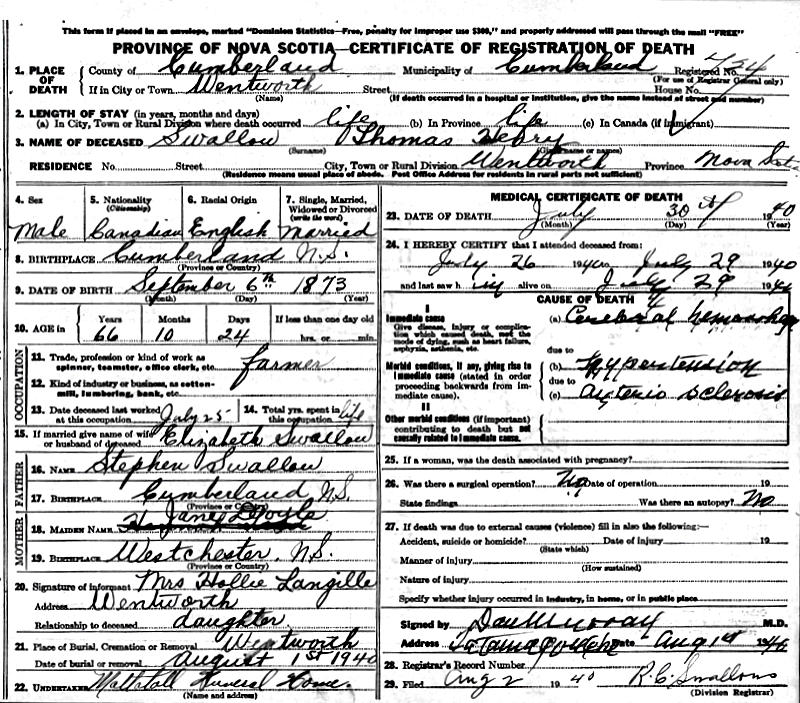 This form if placed in an envelope, marked "Dominion Statistics—Free, penalty for improper use $300," and properly addressed will pass through the mail "FREE"
PROVINCE OF NOVA SCOTIA—CERTIFICATE OF REGISTRATION OF DEATH
1. PLACE OF DEATH County of Cumberland Municipality of Cumberland Registered No. 434
(For use of Registrar General only)
If in City or Town Wentworth Street House No.
(Name) (If death occurred in a hospital or institution, give the name instead of street and number)
2. LENGTH OF STAY (in years, months and days)
(a) In City, Town or Rural Division where death occurred life (b) In Province life (c) In Canada (if immigrant)
3. NAME OF DECEASED Swallow Thomas Henry
(Surname) (Given name or names)
RESIDENCE No. Street City, Town or Rural Division Wentworth Province Nova Scot
(Residence means usual place of abode. Post Office Address for residents in rural parts not sufficient)
4. Sex 5. Nationality (Citizenship) 6. Racial Origin 7. Single, Married, Widowed or Divorced (write the word)
Male Canadian English Married
8. BIRTHPLACE Cumberland N.S.
(Province or Country)
9. DATE OF BIRTH September 6th 1873
(Month) (Day) (Year)
10. AGE in Years Months Days If less than one day old
66 10 24 hrs. or min.
OCCUPATION
11. Trade, profession or kind of work as spinner, teamster, office clerk, etc. farmer
12. Kind of industry or business, as cotton-mill, lumbering, bank, etc.
13. Date deceased last worked at this occupation July 25 14. Total yrs. spent in this occupation life
15. If married give name of wife or husband of deceased Elizabeth Swallow
FATHER
16. NAME Stephen Swallow
17. BIRTHPLACE Cumberland N.S.
(Province or Country)
MOTHER
18. MAIDEN NAME Janey Doyle
19. BIRTHPLACE Westchester, N.S.
(Province or Country)
20. Signature of informant Mrs Hollie Langille
Address Wentworth
Relationship to deceased daughter
21. Place of Burial, Cremation or Removal Wentworth
Date of burial or removal August 1st 1940
22. UNDERTAKER Mattatall Funeral Home.
(Name and address)
MEDICAL CERTIFICATE OF DEATH
23. DATE OF DEATH July 30th 1940
(Month) (Day) (Year)
24. I HEREBY CERTIFY that I attended deceased from:
July 26 1940 to July 29 1940
and last saw him alive on July 29 1940
CAUSE OF DEATH
I
Immediate cause (a) Cerebral hemorrhage
Give disease, injury or complication which caused death, not the mode of dying, such as heart failure, asphyxia, asthenia, etc.
due to
Morbid conditions, if any, giving rise to immediate cause (stated in order proceeding backwards from immediate cause).
(b) Hypertension
due to
(c) arterio sclerosis
II
Other morbid conditions (if important) contributing to death but not causally related to immediate cause.
25. If a woman, was the death associated with pregnancy?
26. Was there a surgical operation? No Date of operation 19
State findings Was there an autopsy? No
27. If death was due to external causes (violence) fill in also the following:—
Accident, suicide or homicide? Date of injury 19
(State which)
Manner of injury
(How sustained)
Nature of injury
Specify whether injury occurred in industry, in home, or in public place
Signed by Dan Murray M.D.
Address Tatamagouche Date Aug 1st 1940
28. Registrar's Record Number
29. Filed Aug 2 1940 R.C. Swallow
(Division Registrar)